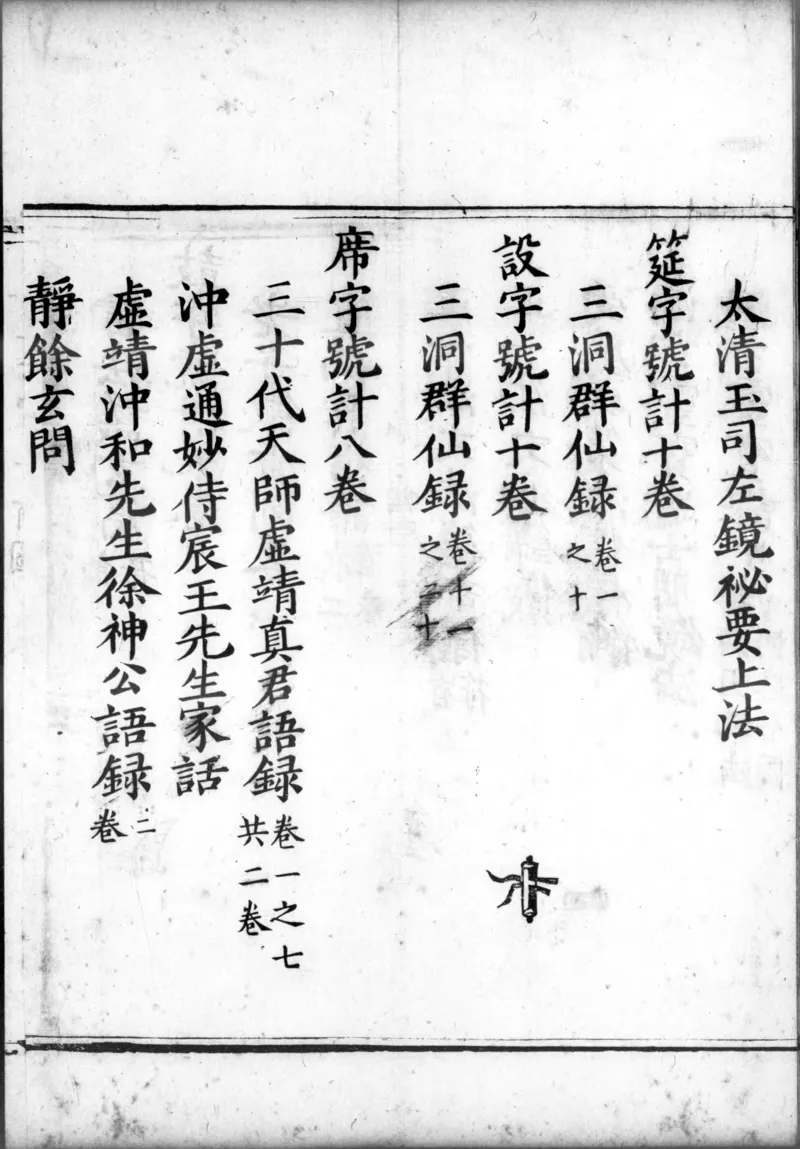 太清玉司左鏡祕要上法
筵字號計十卷
三洞群仙録卷一之十
設字號計十卷
三洞群仙録卷十一之二十
席字號計八卷
三十代天師虛靖真君語録卷一之七共二卷
沖虛通妙侍宸王先生家話
虛靖沖和先生徐神公語録二卷
靜餘玄問